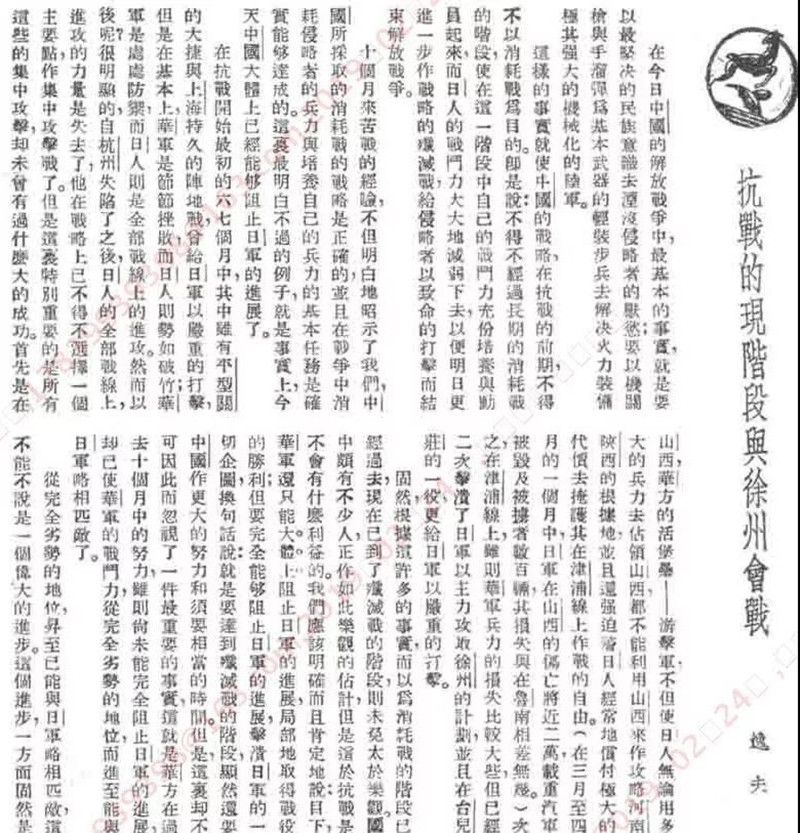 抗戰的現階段與徐州會戰
逸夫
在今日中國的解放戰爭中，最基本的事實，就是要
以最堅決的民族意識去湮沒侵略者的獸慾；要以機關
槍與手溜彈爲基本武器的輕裝步兵去解決火力裝備
極其强大的機械化的陸軍。
這樣的事實就使中國的戰略，在抗戰的前期，不得
不以消耗戰爲目的。卽是說：不得不經過長期的消耗戰
的階段，使在這一階段中自己的戰鬥力充份培養與動
員起來，而日人的戰鬥力大大地減弱下去，以便明日更
進一步作戰略的殲滅戰，給侵略者以致命的打擊而結
束解放戰爭。
十個月來苦戰的經驗，不但明白地昭示了我們：中
國所採取的消耗戰的戰略是正確的，並且在戰爭中消
耗侵略者的兵力與培養自己的兵力的基本任務是確
實能够達成的。這裏最明白不過的例子，就是事實上今
天中國大體上已經能够阻止日軍的進展了。
在抗戰開始最初的六七個月中，其中雖有平型關
的大捷與上海持久的陣地戰，會給日軍以嚴重的打擊，
但是在基本上，華軍是節節挫敗而日人則勢如破竹；華
軍是處處防禦，而日人則是全部戰線上的進攻。然而以
後呢？很明顯的，自杭州失陷了之後，日人的全部戰線上，
進攻的力量是失去了，他在戰略上已不得不選擇一個
主要點作集中攻擊戰了。但是這裏特別重要的是所有
這些的集中攻擊，却未曾有過什麽大的成功。首先是在
山西，華方的活堡壘——游擊軍不但使日人無論用多
大的兵力去佔領山西，都不能利用山西來作攻略河南
陝西的根據地，並且還强迫着日人經常地償付極大的
代價去掩護其在津浦線上作戰的自由。（在三月至四
月的一個月中，日軍在山西的傷亡將近二萬，載重汽車
被毀及被擄者數百輛，其損失與在魯南相差無幾。）次
之在津浦線上，雖則華軍兵力的損失比較大些，但已經
二次擊潰了日軍以主力攻取徐州的計劃，並且在台兒
莊的一役，更給日軍以嚴重的打擊。
固然根據這許多的事實，而以爲消耗戰的階段已
經過去，現在已到了殲滅戰的階段，則未免太於樂觀。國
中頗有不少人，正作如此樂觀的估計，但是這於抗戰是
不會有什麽利益的。我們應該明確而且肯定地說：目下，
華軍還只能大體上阻止日軍的進展，局部地取得戰役
的勝利；但要完全能够阻止日軍的進展，擊潰日軍的一
切企圖，換句話說，就是要達到殲滅戰的階段，顯然還要
中國作更大的努力和須要相當的時間。但是，這裏却不
可因此而忽視了一件最重要的事實，這就是華方在過
去十個月中的努力，雖則尚未能完全阻止日軍的進展，
却已使華軍的戰鬥力，從完全劣勢的地位，而進至能與
日軍略相匹敵了。
從完全劣勢的地位，昇至已能與日軍略相匹敵，這
不能不說是一個偉大的進步。這個進步，一方面固然是